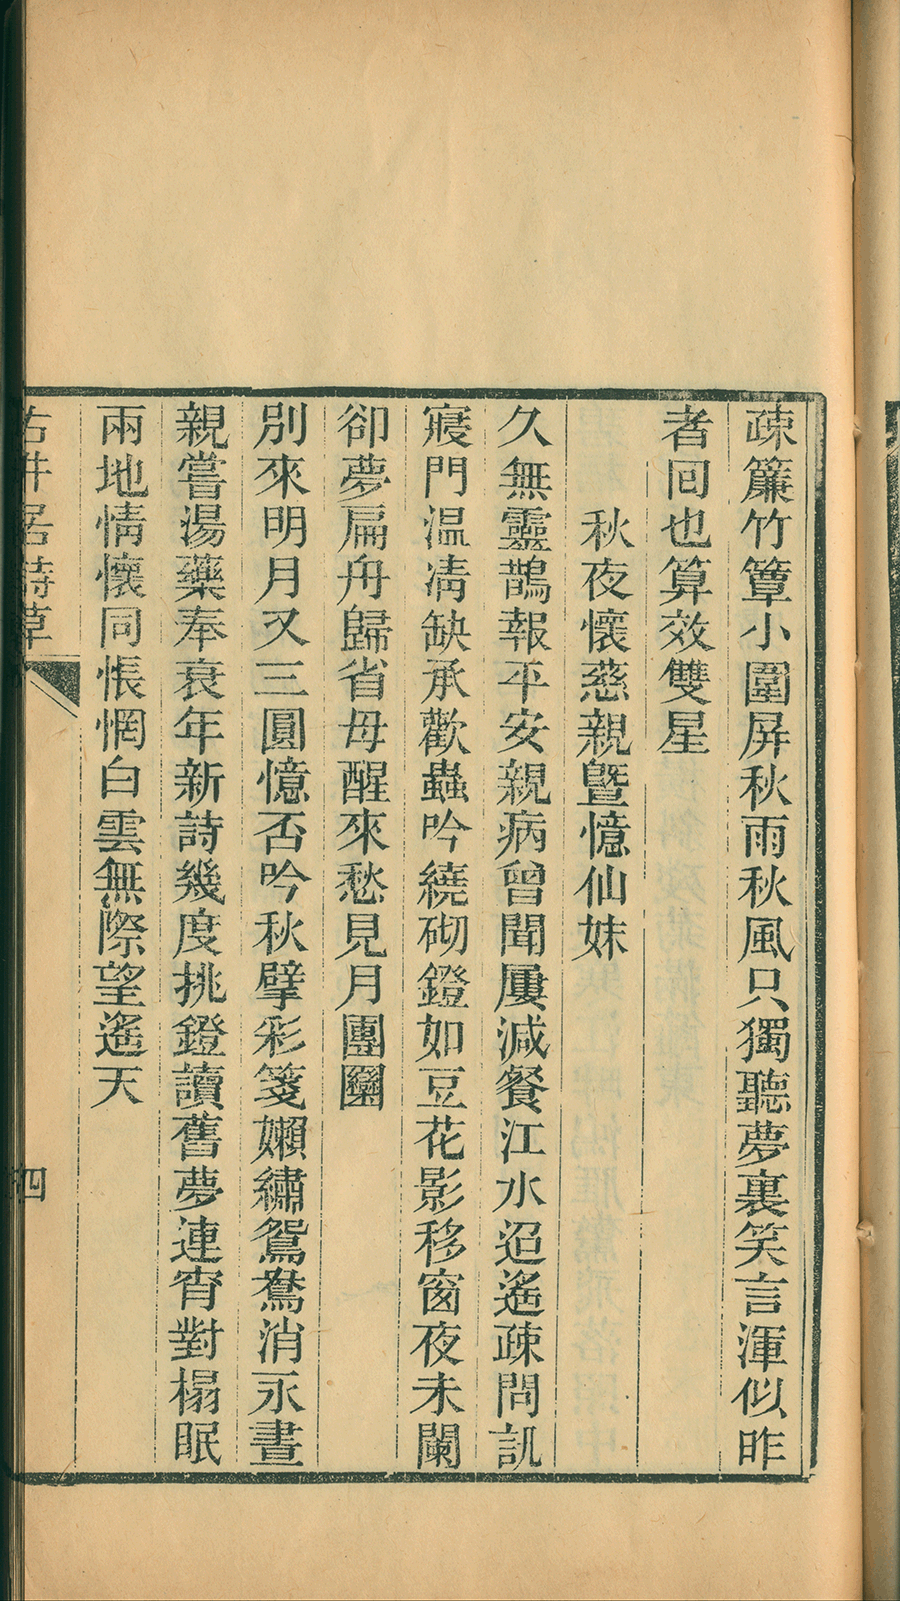 疎簾竹簟小圍屏秋雨秋風只獨聽夢裏笑言渾似昨
者回也算效雙星
秋夜懷慈親曁憶仙妹
久無靈鵲報平安親病曾聞屢減餐江水迢遙疎問訊
寢門温凊缺承歡蟲吟繞砌鐙如豆花影移窗夜未闌
卻夢扁舟歸省母醒來愁見月團圞
別來明月又三圓憶否吟秋擘彩箋嬾繡鴛鴦消永晝
親嘗湯藥奉衰年新詩幾度挑鐙讀舊夢連宵對榻眠
兩地情懷同悵惘白雲無際望遙天
古井居詩草
四